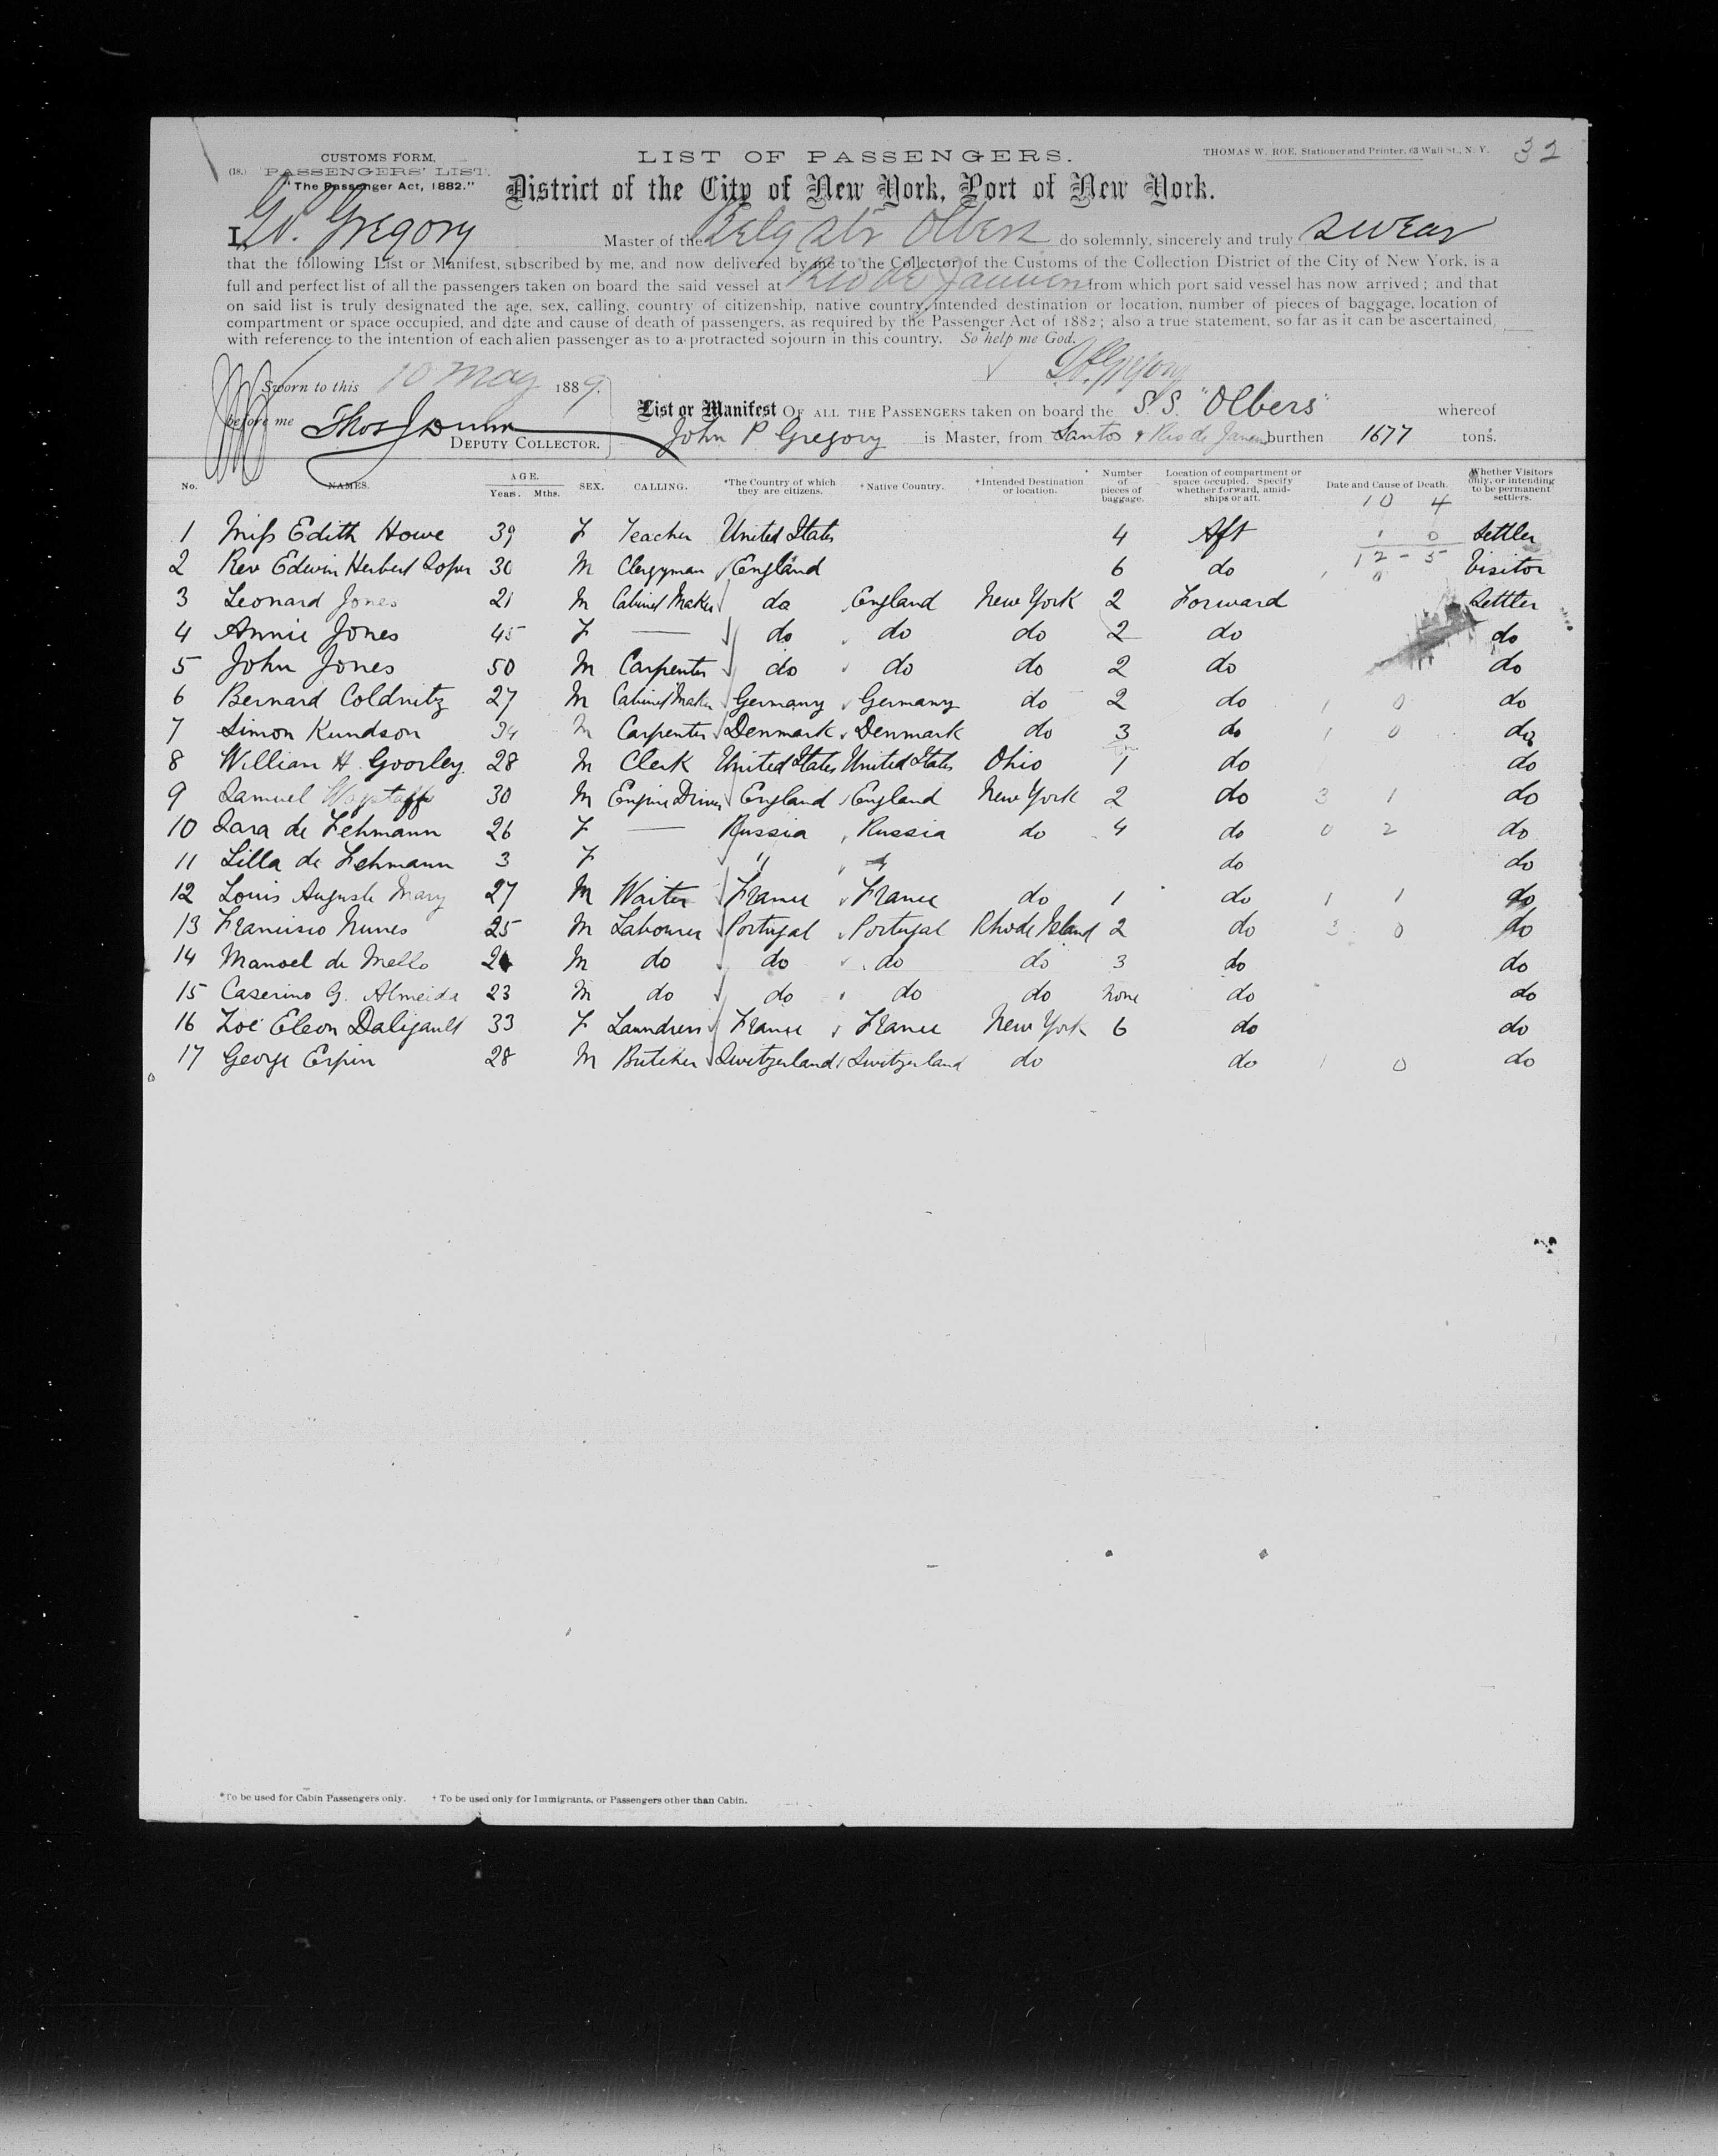 32
CUSTOMS FORM,
LIST OF PASSENGERS.
THOMAS W. ROE, Stationer and Printer, 63 Wall St., N. Y.
(18.) PASSENGERS' LIST.
"The Passenger Act, 1882."
District of the City of New York, Port of New York.
I, Gregory Master of the Belg Str Olbers do solemnly, sincerely and truly swear
that the following List or Manifest, subscribed by me, and now delivered by me to the Collector of the Customs of the Collection District of the City of New York, is a
full and perfect list of all the passengers taken on board the said vessel at Rio de Janeiro from which port said vessel has now arrived; and that
on said list is truly designated the age, sex, calling, country of citizenship, native country, intended destination or location, number of pieces of baggage, location of
compartment or space occupied, and date and cause of death of passengers, as required by the Passenger Act of 1882; also a true statement, so far as it can be ascertained,
with reference to the intention of each alien passenger as to a protracted sojourn in this country. So help me God.
Gregory
Sworn to this 10 May 1889.
before me Thos J Dunn
DEPUTY COLLECTOR.
List or Manifest OF ALL THE PASSENGERS taken on board the S.S. "Olbers" whereof
John P Gregory is Master, from Santos & Rio de Janeiro burthen 1677 tons.
No. NAMES. AGE. Years. Mths. SEX. CALLING. *The Country of which they are citizens. †Native Country. *Intended Destination or location. Number of pieces of baggage. Location of compartment or space occupied. Specify whether forward, amidships or aft. Date and Cause of Death. Whether Visitors only, or intending to be permanent settlers.
10 4
1 Miss Edith Howe 39 F Teacher United States 4 Aft 1 0 Settler
12 - 5
2 Rev Edwin Herbert Soper 30 M Clergyman England 6 do 1 0 Visitor
3 Leonard Jones 21 M Cabinet Maker do England New York 2 Forward Settler
4 Annie Jones 45 F — do do do 2 do do
5 John Jones 50 M Carpenter do do do 2 do do
6 Bernard Coldnitz 27 M Cabinet Maker Germany Germany do 2 do 1 0 do
7 Simon Kundson 34 M Carpenter Denmark Denmark do 3 do 1 0 do
8 William H. Goorley 28 M Clerk United States United States Ohio 1 do do
9 Samuel Wagstaff 30 M Engine Driver England England New York 2 do 3 1 do
10 Sara de Lehmann 26 F — Russia Russia do 4 do 0 2 do
11 Lilla de Lehmann 3 F " " do do
12 Louis Auguste Mary 27 M Waiter France France do 1 do 1 1 do
13 Francisco Nunes 25 M Labourer Portugal Portugal Rhode Island 2 do 3 0 do
14 Manoel de Mello M do do do do 3 do do
15 Caserino G. Almeida 23 M do do do do None do do
16 Zoé Eleon Daligault 33 F Laundress France France New York 6 do do
17 George Erpin 28 M Butcher Switzerland Switzerland do do 1 0 do
*To be used for Cabin Passengers only. † To be used only for Immigrants, or Passengers other than Cabin.